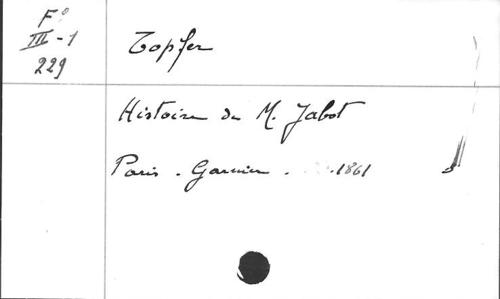 F°
III-1
229
Topfer
Histoire de M. Jabot
Paris. Garnier. 1861